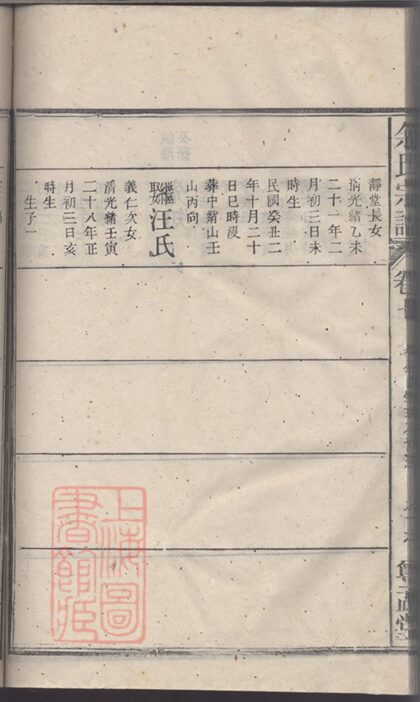 靜堂長女
清光緒乙未
二十一年二
月初三日未
時生
民國癸丑二
年十月二十
日巳時沒
葬中蕭山壬
山丙向
汪氏
義仁次女
清光緒壬寅
二十八年正
月初三日亥
時生
生子一
氏宗譜
卷七
上海圖
書館藏